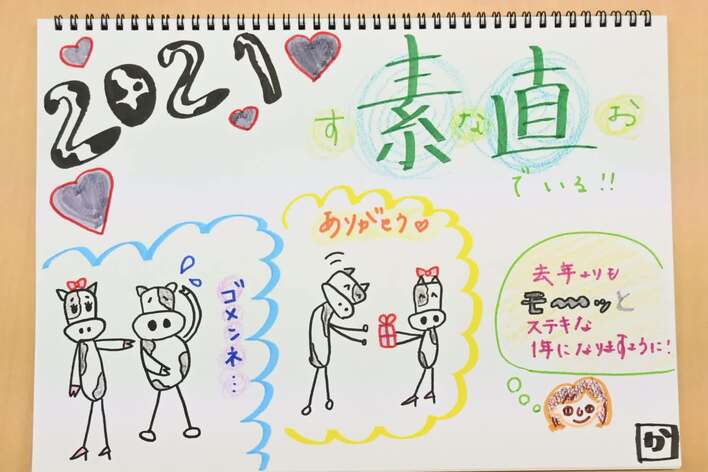 2021
す素な直お
でいる!!
ありがとう♡
ゴメンネ…
去年よりも
モ〜〜ッと
ステキな
1年になりますように!
か